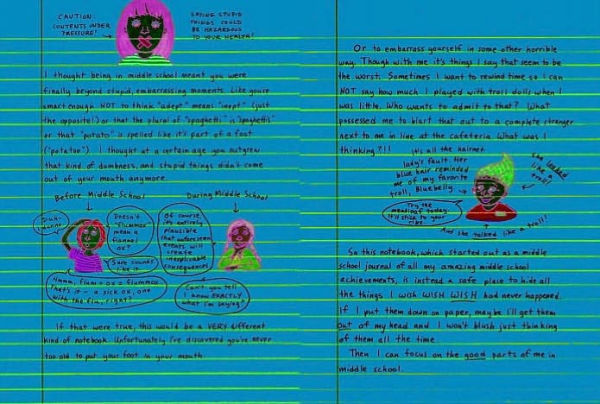 CAUTION
CONTENTS UNDER
PRESSURE!
SAYING STUPID
THINGS COULD
BE HAZARDOUS
TO YOUR HEALTH!
I thought being in middle school meant you were
finally beyond stupid, embarrassing moments. Like you're
smart enough NOT to think "adept" means "inept" (just
the opposite!) or that the plural of "spaghetti" is "spaghettis"
or that "potato" is spelled like it's part of a foot
("potatoe"). I thought at a certain age you outgrew
that kind of dumbness, and stupid things didn't come
out of your mouth anymore.
Before Middle School
During Middle School
Doesn't
"flummox"
mean a
flannel
ox?
Sure sounds
like it.
Hmmm, flam + ox = flummox
that's it - a sick ox, one
with the flu, right?
Of course
it's entirely
plausible
that unforeseen
events will
create
inexplicable
consequences
Can't you tell
I know EXACTLY
what I'm saying?
If that were true, this would be a VERY different
kind of notebook. Unfortunately I've discovered you're never
too old to put your foot in your mouth
Or to embarrass yourself in some other horrible
way. Though with me it's things I say that seem to be
the worst. Sometimes I want to rewind time so I can
NOT say how much I played with troll dolls when I
was little. Who wants to admit to that? What
possessed me to blurt that out to a complete stranger
next to me in line at the cafeteria. What was I
thinking?!!
It's all the hairnet
lady's fault. Her
blue hair reminded
me of my favorite
troll, Bluebelly.
She looked
like a
troll!
Try the
meatloaf today.
It'll stick to your
ribs.
And she talked like a troll!
So this notebook, which started out as a middle
school journal of all my amazing middle school
achievements, is instead a safe place to hide all
the things I wish WISH WISH had never happened.
If I put them down on paper, maybe I'll get them
out of my head and I won't blush just thinking
of them all the time.
Then I can focus on the good parts of me in
middle school.